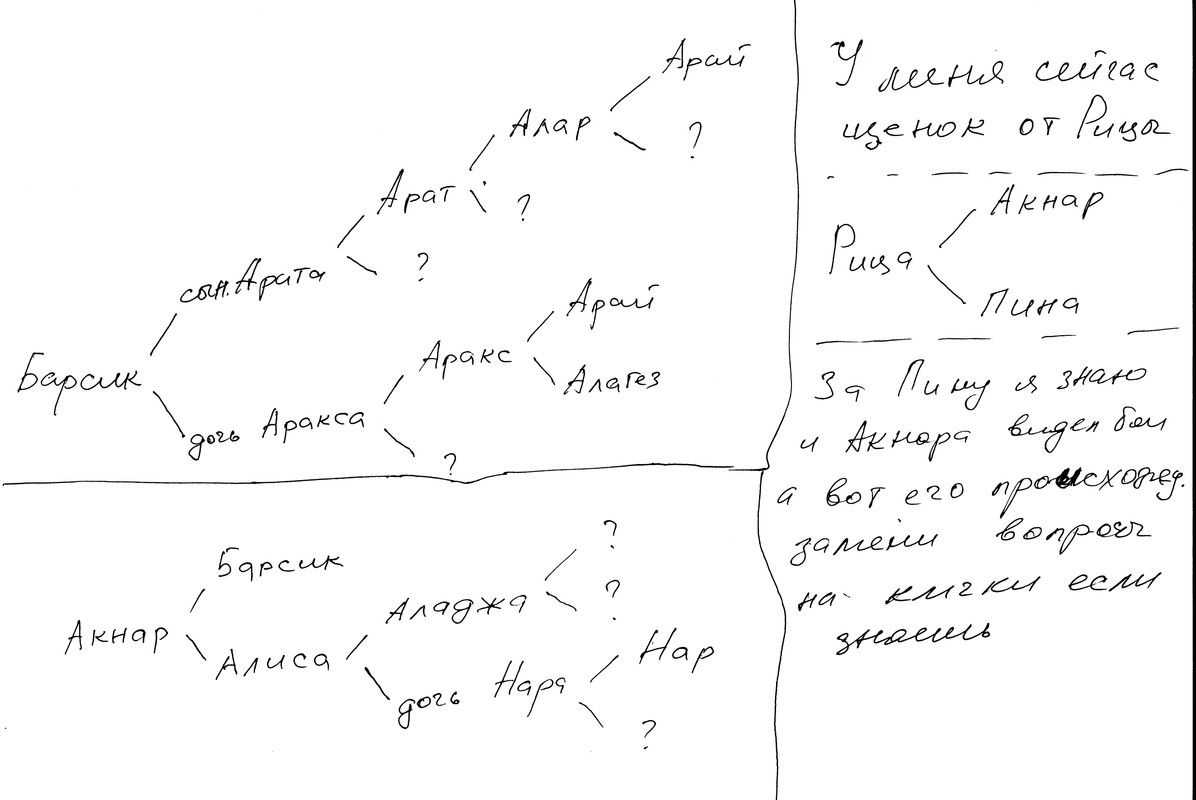 Арай
Алар
?
Арат
?
сын. Арата
?
Барсик
Арай
Аракс
Алагез
дочь Аракса
?
Барсик
Акнар
Алиса
?
Аладжа
?
Нар
дочь Нара
?
У меня сейчас
щенок от Рицы
Акнар
Рица
Пина
За Пину я знаю
и Акнара видел бои
а вот его происхожд.
замени вопросы
на клички если
знаешь